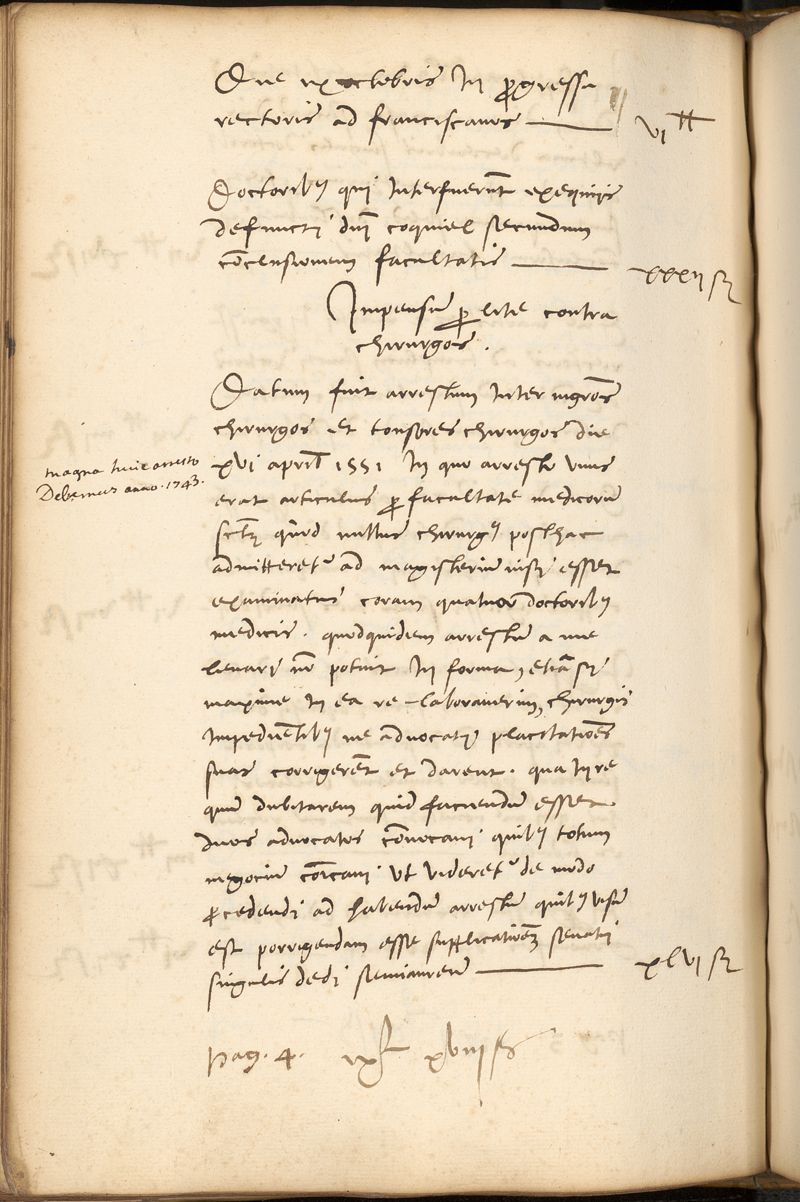 Die ix octobris In progressu
rectoris ad franciscanos — vi tt
Doctoribus qui Interfuerunt exequiis
defuncti dni coquiel secundum
conclusionem facultatis — xxxii s
Impensum pro lite contra
chirurgos .
Datum fuit arrestum Inter mgros
chirurgos et tonsores chirurgos die
xvi april 1551 In quo arresto unus
erat articulus pro facultate medicorum
quod nullus chirurgus posthac
admitteretur ad magisterium nisi esset
examinatus coram quatuor doctoribus
medicis . quodquidem arrestum a me
levari non potuit In forma, etiam si
maxime In ea re laboraverim, chirurgis
Impedientibus ne advocati placitationes
suas corrigerent et darent . qua In re
quum dubitarem quid faciendum esset .
duos advocatos convocavi quibus totum
negocium coicavi ut videretur de modo
procedendi ad habendum arrestum quibus visum
est porrigendam esse supplicationem senatui
singulis dedi semiaureum — xlvi s
magna huic arresto
Debemus anno . 1743 .
pag . 4 . ix l xviii s